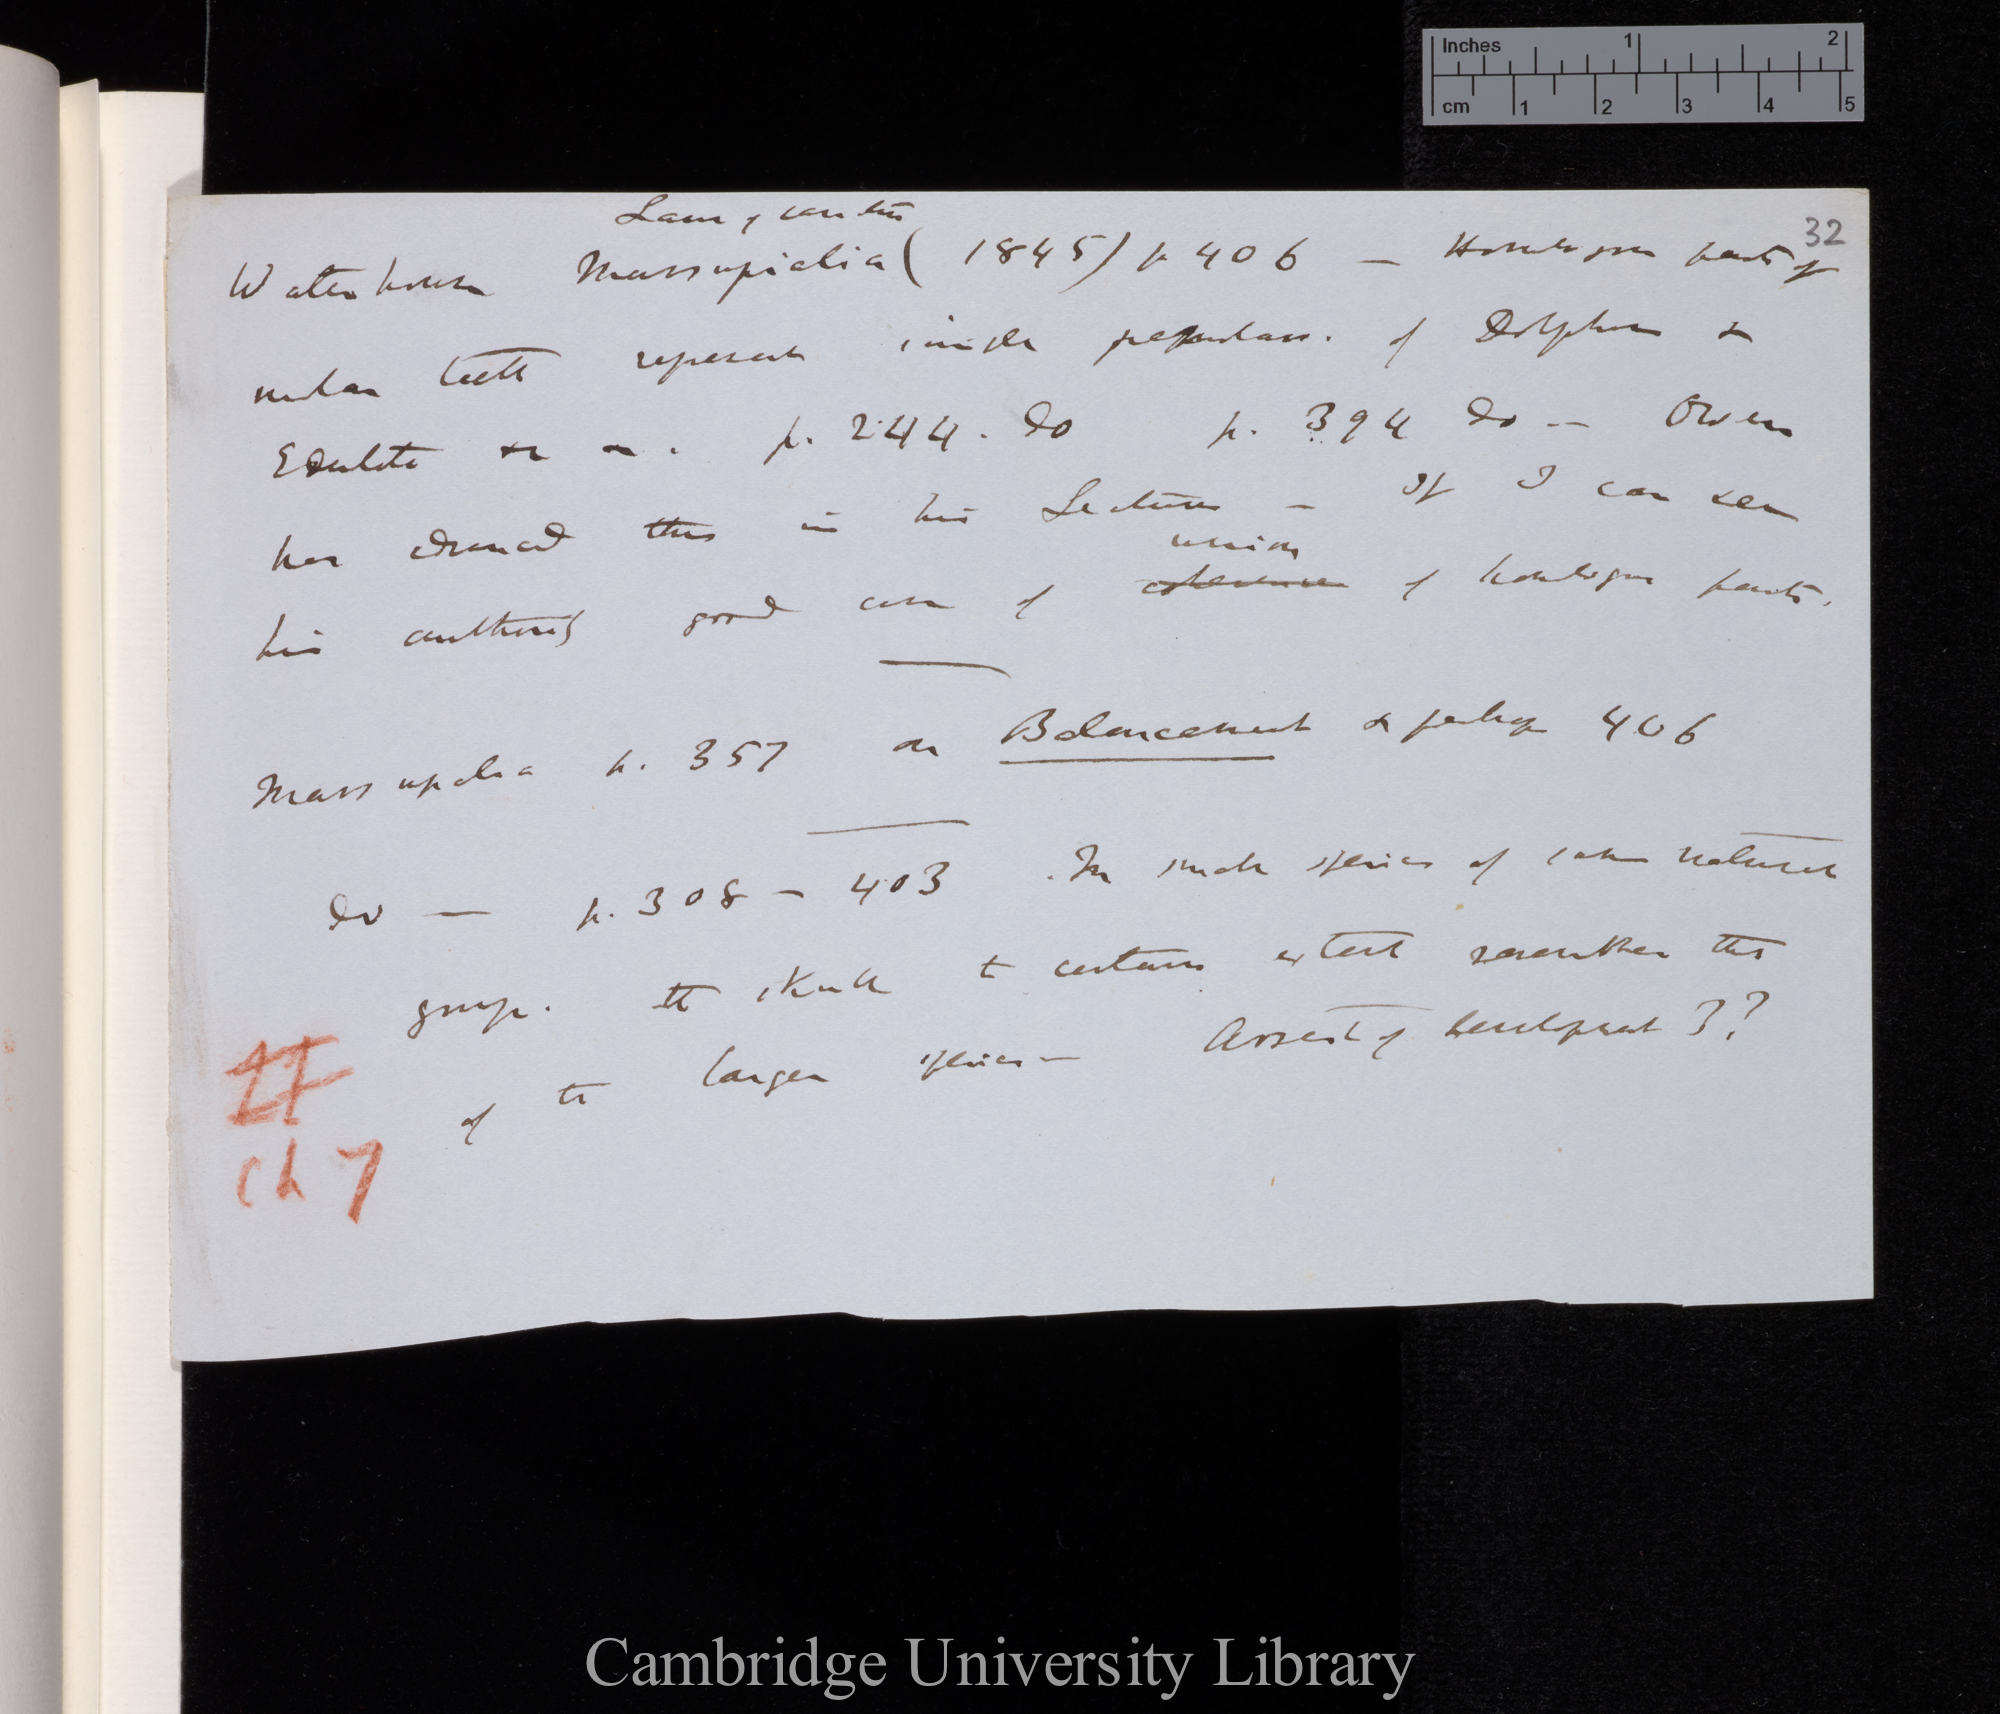 Inches 1 2
cm 1 2 3 4 5
32
Laws of variation
Waterhouse Marsupialia (1845) p 406 — Homologous parts of
molar teeth represent simple of Dolphins &
Edentata &c &c. p. 244. do p. 394 do — Owen
has advanced this in his Lectures — If I can seen
his authority good case of union
coherence of homologous parts.
Marsupialia p. 357 on Balancement & perhaps 406
do — p. 308 — 403 . In small species of same natural
group. the skull to certain extent resembles the
of the larger species — Arrest of development 3?
Ch 7
Cambridge University Library